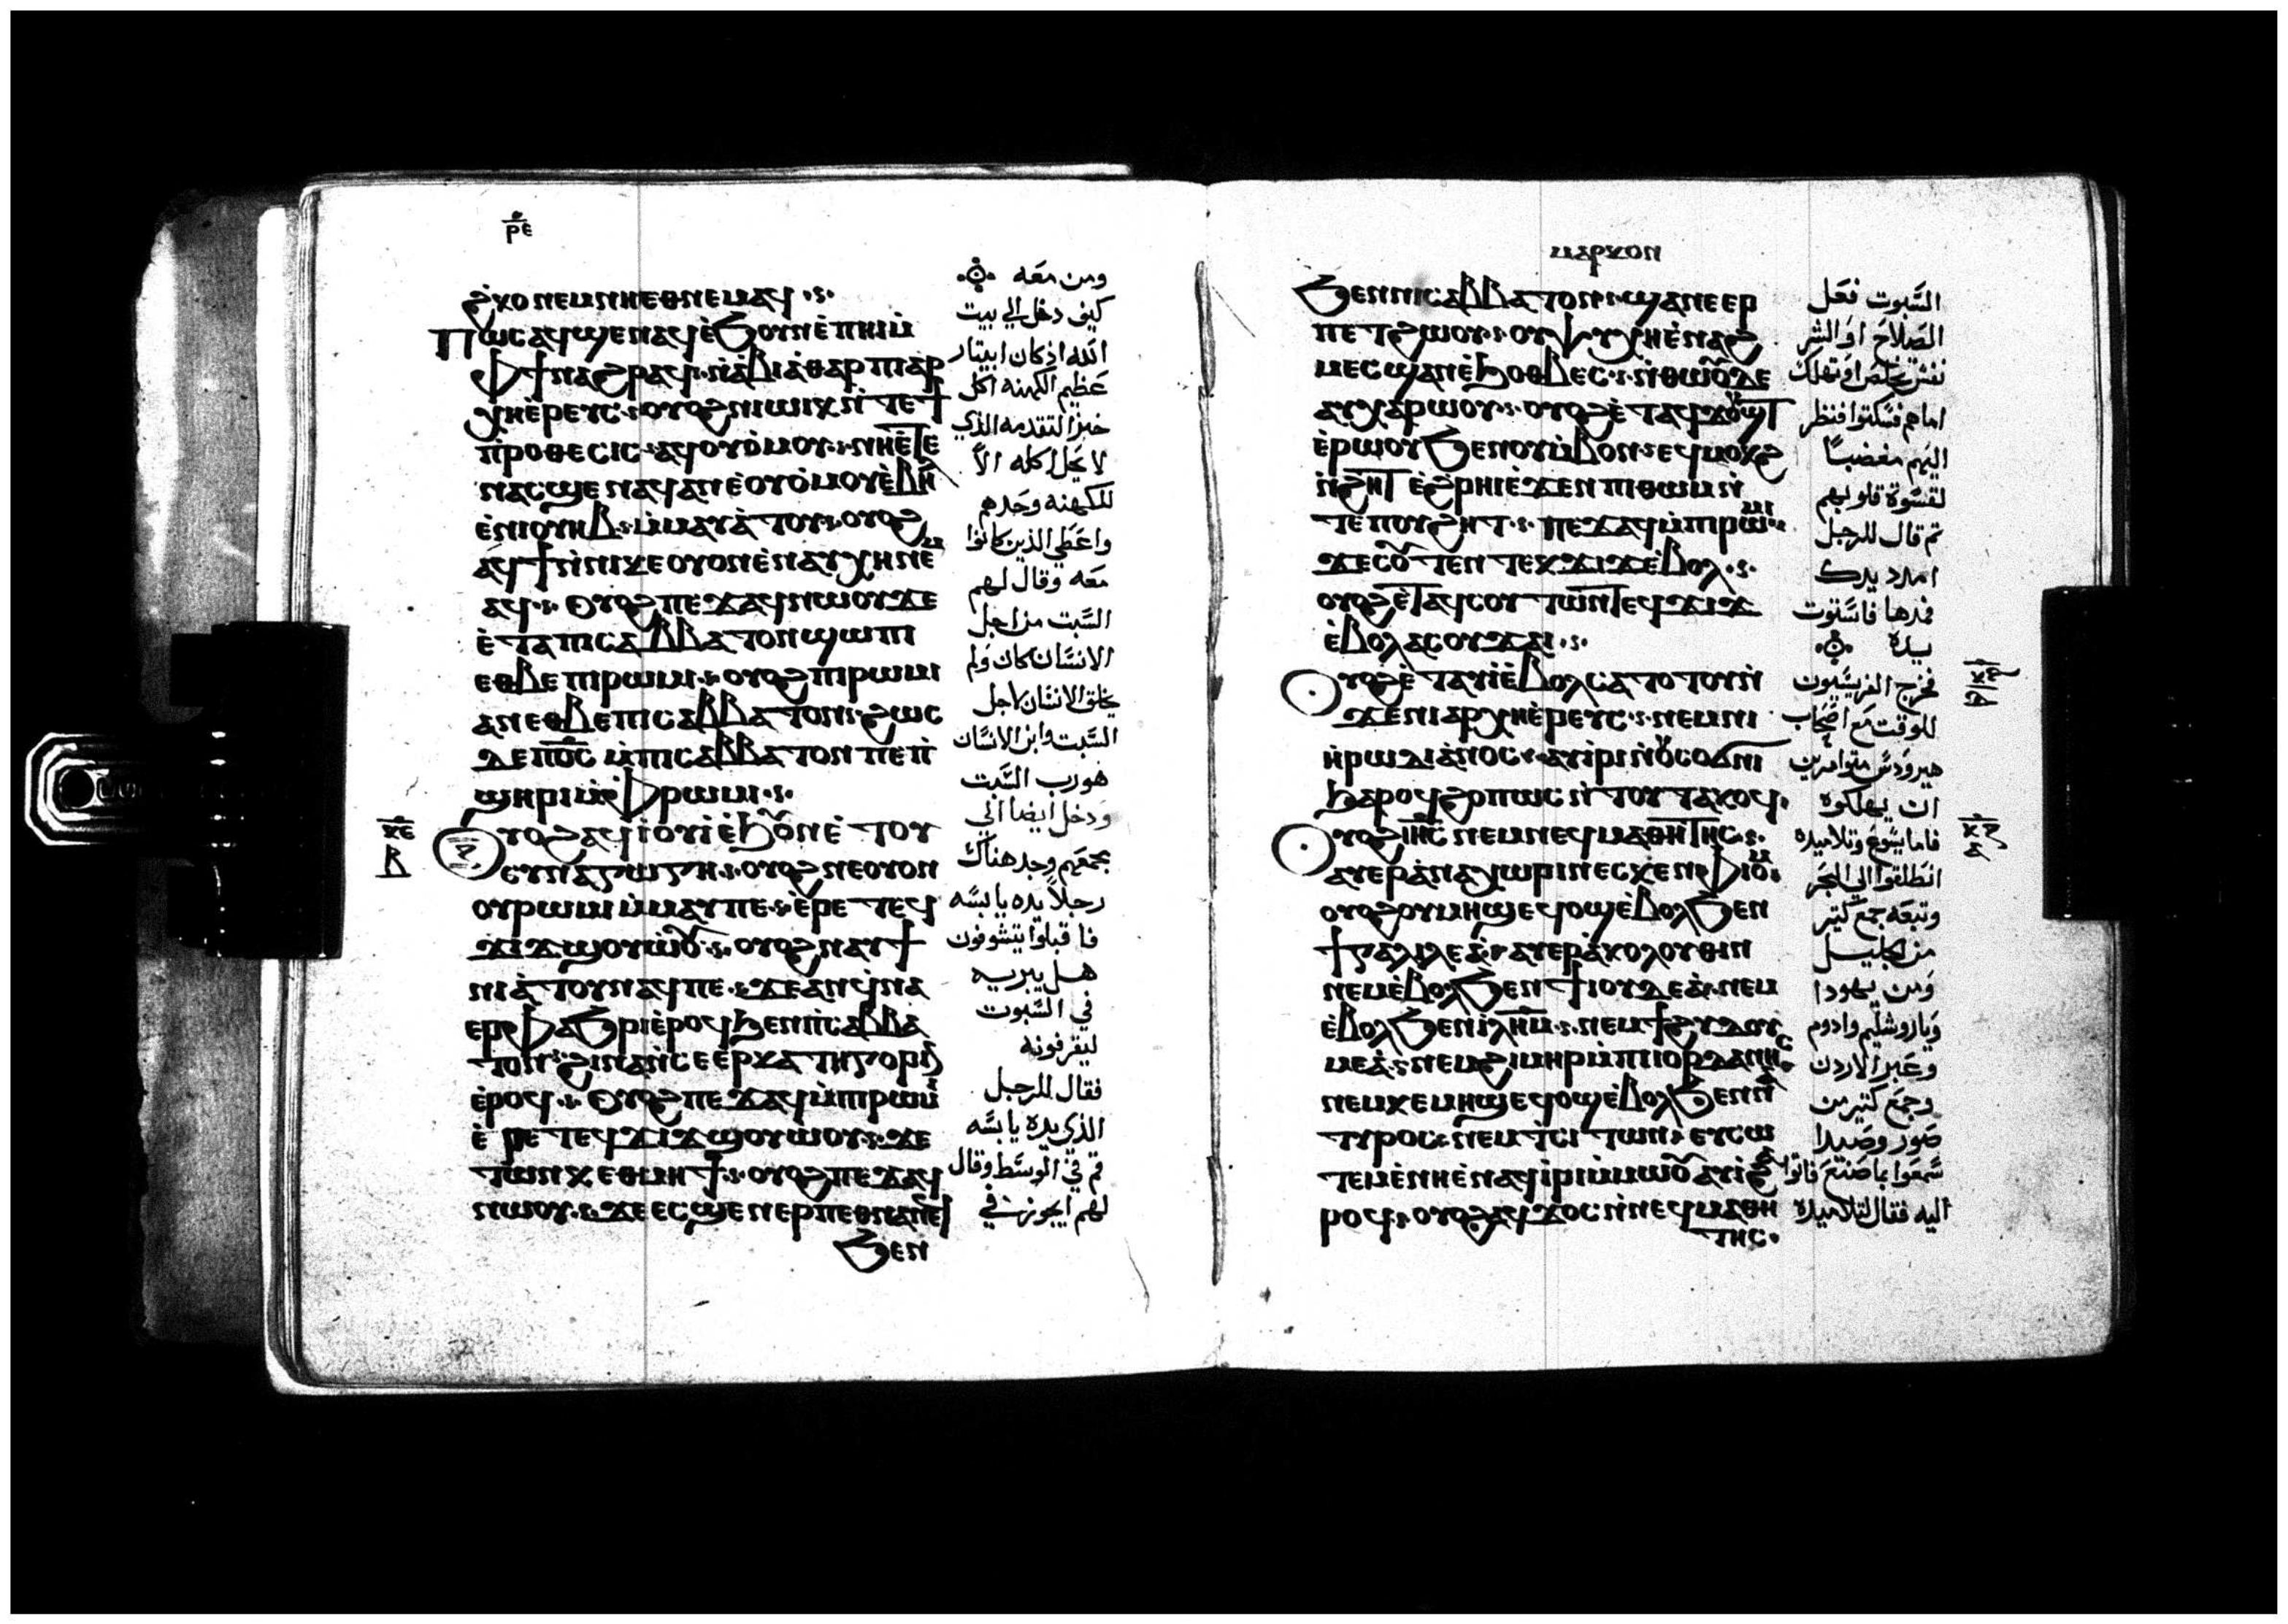 ⲣ̅ⲉ̅
ϩⲕⲟ ⲛⲉⲙ ⲛⲏⲉⲑⲛⲉⲙⲁϥ
Ⲡⲱⲥ ⲁϥϣⲉⲛⲁϥ ⲉ̀ϧⲟⲩⲛ ⲉ̀ⲡⲏⲓ ⲙ̀
ⲫϯ ⲛⲁϩⲣⲁϥ ⲛ̀ⲁ̀ⲃⲓⲁ̀ⲑⲁⲣ ⲡⲓⲁⲣ
ⲭⲏⲉ̀ⲣⲉⲩⲥ ⲟⲩⲟϩ ⲛⲓⲱⲓⲕ ⲛ̀ⲧⲉ ϯ
ⲡ̀ⲣⲟⲑⲉⲥⲓⲥ ⲁϥⲟⲩⲟ̀ⲙⲟⲩ ⲛⲏⲉ̀ⲧⲉ
ⲛⲁⲥϣⲉ ⲛⲁϥ ⲁⲛ ⲉ̀ⲟⲩⲟ̀ⲙⲟⲩ ⲉ̀ⲃⲏⲗ
ⲉ̀ⲛⲓⲟⲩⲏⲃ ⲙ̀ⲙⲁⲩⲁ̀ⲧⲟⲩ ⲟⲩⲟϩ
ⲁϥϯ ⲛ̀ⲛⲓⲕⲉⲟⲩⲟⲛ ⲉ̀ⲛⲁⲩⲭⲏ ⲛⲉⲙ
ⲁϥ Ⲟⲩⲟϩ ⲡⲉϫⲁϥ ⲛⲱⲟⲩ ϫⲉ
ⲉ̀ⲧⲁ ⲡⲓⲥⲁⲃⲃⲁⲧⲟⲛ ϣⲱⲡⲓ
ⲉⲑⲃⲉ ⲡⲓⲣⲱⲙⲓ ⲟⲩⲟϩ ⲡⲓⲣⲱⲙⲓ
ⲁⲛ ⲉⲑⲃⲉ ⲡⲓⲥⲁⲃⲃⲁⲧⲟⲛ ϩⲱⲥ
ⲇⲉ ⲡⲟ̅ⲥ̅ ⲙ̀ⲡⲓⲥⲁⲃⲃⲁⲧⲟⲛ ⲡⲉ ⲡ̀
ϣⲏⲣⲓ ⲙ̀ⲫⲣⲱⲙⲓ
ⲕ̅ⲉ̅
ⲃ
Ⲟⲩⲟϩ ⲁϥⲓ̀ ⲟⲩⲓ̀ ⲉ̀ϧⲟⲩⲛ ⲉ̀ⲧⲟⲩ
ⲥⲩⲛⲁⲅⲱⲅⲏ ⲟⲩⲟϩ ⲛⲉ ⲟⲩⲟⲛ
ⲟⲩⲣⲱⲙⲓ ⲙ̀ⲙⲁⲩ ⲡⲉ ⲉ̀ⲣⲉ ⲧⲉϥ
ϫⲓϫ ϣⲟⲩⲱ̀ⲟⲩ ⲟⲩⲟϩ ⲛⲁⲩϯ
ⲛⲓⲁ̀ⲧⲟⲩ ⲛⲁϥ ⲡⲉ ϫⲉ ⲁⲛ ϥ̀ⲛⲁ
ⲉⲣⲫⲁϧⲣⲓ ⲉ̀ⲣⲟϥ ϧⲉⲛ ⲡⲓⲥⲁⲃⲃⲁ
ⲧⲟⲛ ϩⲓⲛⲁ ⲛ̀ⲥⲉⲉⲣⲕⲁⲧⲏⲅⲟⲣⲓⲛ
ⲉ̀ⲣⲟϥ Ⲟⲩⲟϩ ⲡⲉϫⲁϥ ⲙ̀ⲡⲓⲣⲱⲙⲓ
ⲉ̀ⲣⲉ ⲧⲉϥϫⲓϫ ϣⲟⲩⲱ̀ⲟⲩ ϫⲉ
ⲧⲱⲛⲕ ⲉⲑⲙⲏϯ ⲟⲩⲟϩ ⲡⲉϫⲁϥ
ⲛⲱⲟⲩ ϫⲉ ⲉⲥϣⲉ ⲛⲉⲣⲡⲉⲑⲛⲁⲛⲉϥ
ϧⲉⲛ
ومن معه
كيف دخل الي بيت
الله اذ كان ابيتار
عظيم الكهنه اكل
خبز التقدمه الذي
لا يحل اكله الاّ
للكهنه وحدهم
واعطي الذين كانوا
معه وقال لهم
السبت من اجل
الانسان كان ولم
يخلق الانسان لاجل
السبت وابن الانسان
هو رب السبت
ودخل ايضا الي
مجمعهم وجد هناك
رجلاً يده يابسه
فاقبلوا يتشوفون
هل يبريه
في السبوت
ليقرفونه
فقال للرجل
الذي يده يابسه
قم في الوسط وقال
لهم ايجوز في
ⲙⲁⲣⲕⲟⲛ
ϧⲉⲛ ⲛⲓⲥⲁⲃⲃⲁⲧⲟⲛ ϣⲁⲛ ⲉⲉⲣ
ⲡⲉⲧϩⲱⲟⲩ ⲟⲩⲯⲩⲭⲏ ⲉ̀ⲛⲁϩ
ⲙⲉⲥ ϣⲁⲛ ⲉ̀ϧⲟⲑⲃⲉⲥ ⲛ̀ⲑⲱⲟⲩ ⲇⲉ
ⲁⲩⲭⲁⲣⲱⲟⲩ ⲟⲩⲟϩ ⲉ̀ⲧⲁϥϫⲟⲩϣⲧ
ⲉ̀ⲣⲱⲟⲩ ϧⲉⲛ ⲟⲩⲙ̀ⲃⲟⲛ ⲉϥⲙⲟⲕϩ
ⲛ̀ϩⲏⲧ ⲉ̀ϩⲣⲏⲓ ⲉ̀ϫⲉⲛ ⲡⲓⲑⲱⲙ ⲛ̀
ⲧⲉ ⲡⲟⲩϩⲏⲧ ⲡⲉϫⲁϥ ⲙ̀ⲡⲓⲣⲱⲙⲓ
ϫⲉ ⲥⲟⲩⲧⲉⲛ ⲧⲉⲕϫⲓϫ ⲉ̀ⲃⲟⲗ
ⲟⲩⲟϩ ⲉ̀ⲧⲁϥⲥⲟⲩⲧⲱⲛ ⲧⲉϥϫⲓϫ
ⲉ̀ⲃⲟⲗ ⲁⲥⲟⲩϫⲁⲓ
Ⲟⲩⲟϩ ⲉ̀ⲧⲁⲩⲓ̀ ⲉ̀ⲃⲟⲗ ⲥⲁⲧⲟⲧⲟⲩ ⲛ̀
ϫⲉ ⲛⲓⲁⲣⲭⲏⲉ̀ⲣⲉⲩⲥ ⲛⲉⲙ ⲛⲓ
ⲏ̀ⲣⲱⲇⲓⲁⲛⲟⲥ ⲁⲩⲓ̀ⲣⲓ ⲛ̀ⲟⲩⲥⲟϭⲛⲓ
ϧⲁⲣⲟϥ ϩⲟⲡⲱⲥ ⲛ̀ⲧⲟⲩⲧⲁⲕⲟϥ
Ⲟⲩⲟϩ ⲓⲏ̅ⲥ̅ ⲛⲉⲙ ⲛⲉϥⲙⲁⲑⲏⲧⲏⲥ
ⲁⲩⲉⲣⲁ̀ⲛⲁⲭⲱⲣⲓⲛ ⲉⲥⲕⲉⲛ ⲫⲓⲟⲙ
ⲟⲩⲟϩ ⲟⲩⲙⲏϣ ⲉϥⲟϣ ⲉ̀ⲃⲟⲗ ϧⲉⲛ
ϯⲅⲁⲗⲓⲗⲉⲁ̀ ⲁⲩⲉⲣⲁ̀ⲕⲟⲗⲟⲩⲑⲓⲛ
ⲛⲉⲙ ⲉ̀ⲃⲟⲗ ϧⲉⲛ ϯⲓⲟⲩⲇⲉⲁ̀ ⲛⲉⲙ
ⲉ̀ⲃⲟⲗ ϧⲉⲛ ⲓⲗⲏ̅ⲙ̅ ⲛⲉⲙ ϯϩⲩⲇⲟⲩ
ⲙⲉⲁ̀ ⲛⲉⲙ ϩⲓⲙⲏⲣ ⲙ̀ⲡⲓⲓⲟⲣⲇⲁⲛⲏⲥ
ⲛⲉⲙ ⲕⲉⲙⲏϣ ⲉϥⲟϣ ⲉ̀ⲃⲟⲗ ϧⲉⲛ
ⲧⲩⲣⲟⲥ ⲛⲉⲙ ⲧ̀ⲥⲓⲧⲱⲛ ⲉⲩⲥⲱ
ⲧⲉⲙ ⲉ̀ⲛⲏⲉ̀ⲛⲁϥⲓ̀ⲣⲓ ⲙ̀ⲙⲱⲟⲩ ⲁⲩⲓ̀ ϩⲁ
ⲣⲟϥ ⲟⲩⲟϩ ⲁϥϫⲟⲥ ⲛ̀ⲛⲉϥⲙⲁⲑⲏ
ⲧⲏⲥ
السبوت فعل
الصلاح او الشر
نفس تخلص او تهلك
اما هم فسكتوا فنظر
اليهم مغضباً
لقسوة قلوبهم
ثم قال للرجل
امدد يدك
فمدها فاستوت
يده
فخرج الفريسيون
للوقت مع اصحاب
هيرودس متوامرين
ان يهلكوه
فاما يسوع وتلاميذه
انطلقوا الي البحر
وتبعه جمع كثير
من الجليل
ومن يهودا
وياروشليم وادوم
وعبر الاردن
وجمع كثير من
صور وصيدا
سمعوا بما صنع فاتوا
اليه فقال لتلاميذه